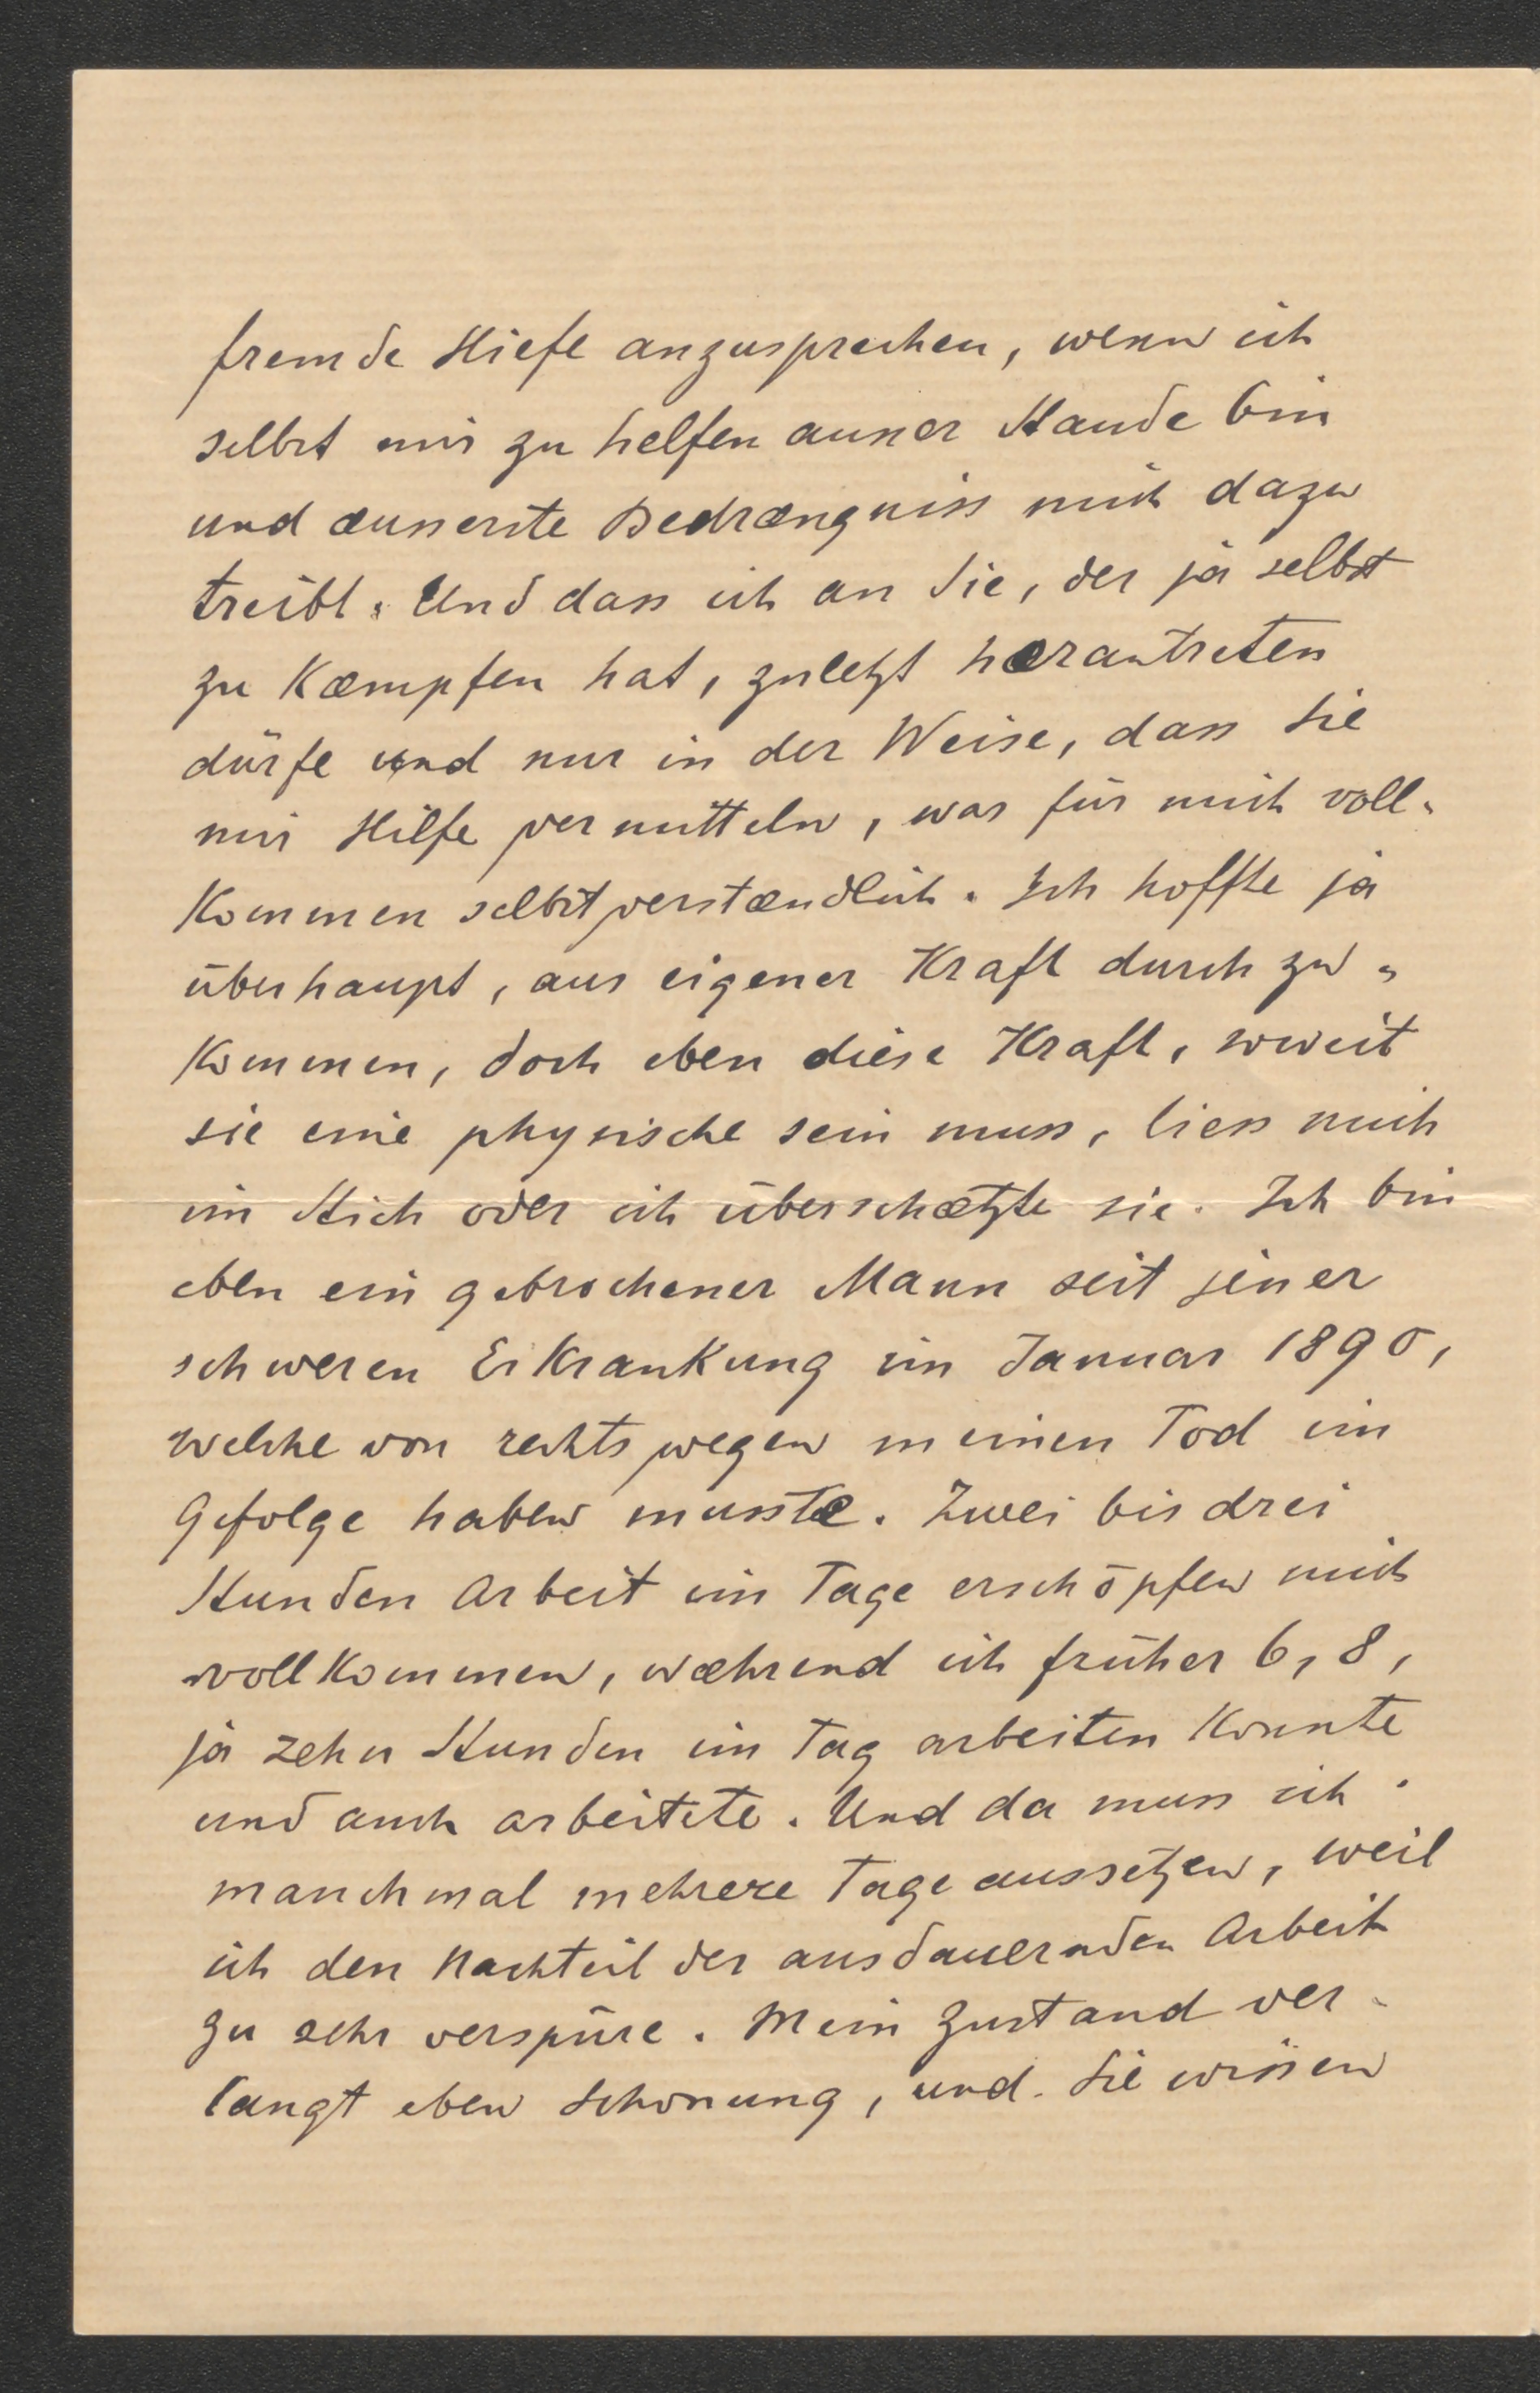 fremde Hiefe anzusprechen, wenn ich
selbst mir zu helfen ausser Stande bin
und æusserste Bedrængniss mich dazu
treibt. Und dass ich an Sie, der ja selbst
zu kæmpfen hat, zuletzt herantreten
dürfe und nur in der Weise, dass Sie
mir Hilfe vermitteln, was für mich voll-
kommen selbstverstændlich. Ich hoffte ja
überhaupt, aus eigener Kraft durchzu-
kommen, doch eben diese Kraft, soweit
sie eine physische sein muss, liess mich
im Stich oder ich überschætzte sie. Ich bin
eben ein gebrochener Mann seit jener
schweren Erkrankung im Januar 1890,
welche von rechtswegen meinen Tod im
Gefolge haben musste. Zwei bis drei
Stunden Arbeit im Tage erschöpfen mich
vollkommen, wæhrend ich früher 6, 8,
ja zehn Stunden im Tag arbeiten konnte
und auch arbeitete. Und da muss ich
manchmal mehrere Tage aussetzen, weil
ich den Nachteil der ausdauernden Arbeit
zu sehr verspüre. Mein Zustand ver-
langt eben Schonung, und Sie wissen